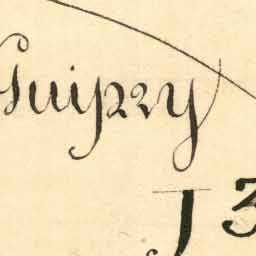 Guipry
J 3